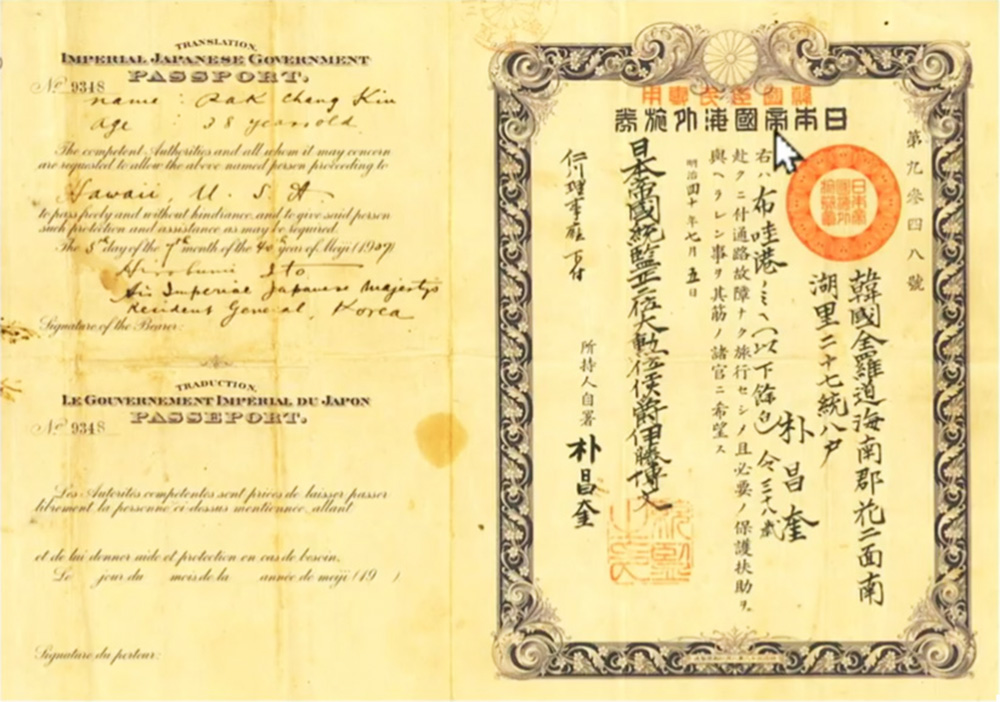 TRANSLATION.
IMPERIAL JAPANESE GOVERNMENT
PASSPORT.
No 9348
name : Pak Chang Kiu
age : 38 years old
The competent Authorities and all whom it may concern
are requested to allow the above named person proceeding to
Hawaii, U. S. A
to pass freely and without hindrance, and to give said person
such protection and assistance as may be required.
The 5th day of the 7th month of the 40th of Meiji (1907)
Hirobumi Ito
His Imperial Japanese Majesty's
Resident General, Korea
Signature of the Bearer:
TRADUCTION.
LE GOUVERNEMENT IMPÉRIAL DU JAPON
PASSEPORT.
No 9348
Les Autorités compétentes sont priées de laisser passer
librement la personne ci-dessus mentionnée, allant
et de lui donner aide et protection en cas de besoin.
Le jour du mois de la année de meiji (19 )
Signature du porteur:
韓國臣民專用
日本帝國海外旅券
第九參四八號
韓國全羅道海南郡花二面南
湖里二十七統八戸
朴昌奎
今三十八歳
右ハ布哇港ノミヘ(以下餘白)
赴クニ付通路故障ナク旅行セシメ且必要ノ保護扶助ヲ
與ヘラレン事ヲ其筋ノ諸官ニ希望ス
明治四十年七月五日
日本帝國統監正二位大勲位侯爵伊藤博文
仁川理事廳下付
所持人自署 朴昌奎